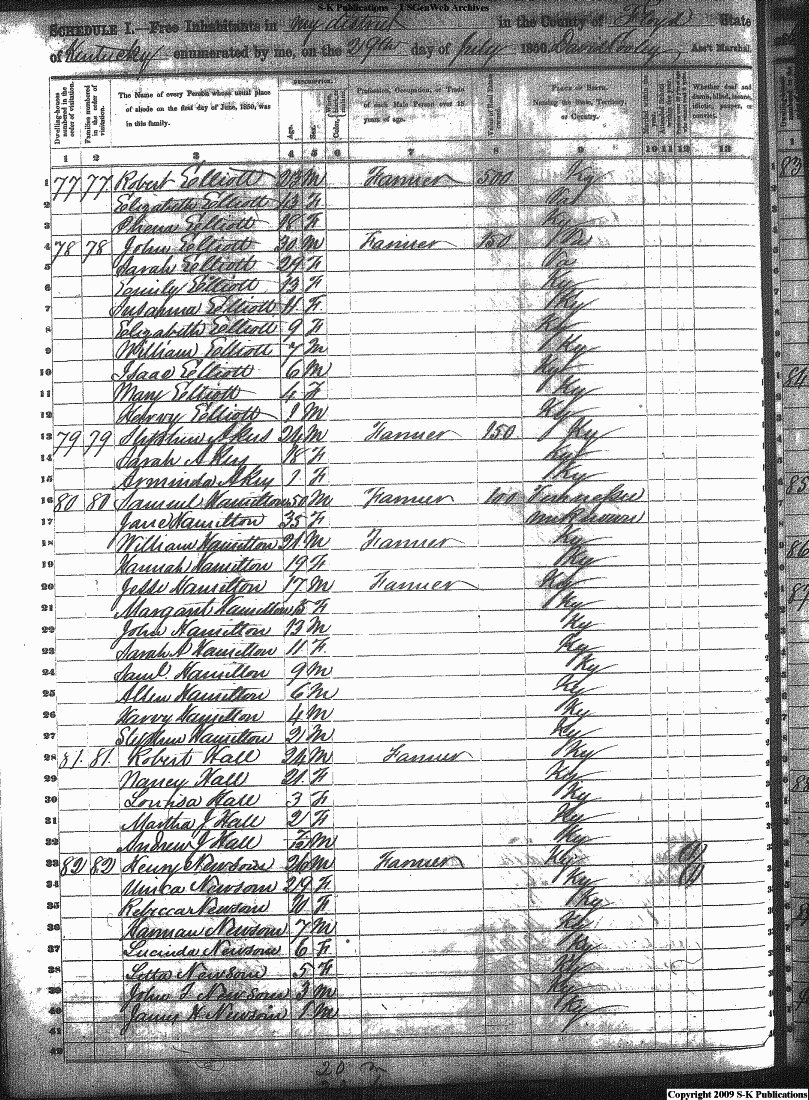 S-K Publications - USGenWeb Archives
SCHEDULE I.—Free Inhabitants in my district in the County of Floyd State
of Kentucky enumerated by me, on the 29th day of July 1850. David Cooley Ass't Marshal.
Dwelling-houses numbered in the order of visitation. Families numbered in the order of visitation. The Name of every Person whose usual place of abode on the first day of June, 1850, was in this family. Description. Age. Sex. Color, Profession, Occupation, or Trade of each Male Person over 15 years of age. Value of Real Estate Place of Birth. Naming the State, Territory, or Country. Whether deaf and dumb, blind, insane, idiotic, pauper, or convict.
1 2 3 4 5 6 7 8 9 10 11 12 13
1 77 77 Robert Elliott M Farmer 500 Ky
2 Elizabeth Elliott F Va
3 Elliott 18 F Ky
4 78 78 John Elliott 30 M Farmer 150 Va
5 Sarah Elliott 29 F Va
6 Emily Elliott 13 F Ky
7 Susanna Elliott 11 F Ky
8 Elizabeth Elliott 9 F Ky
9 William Elliott 7 M Ky
10 Isaac Elliott 6 M Ky
11 Mary Elliott 4 F Ky
12 Harvy Elliott 1 M Ky
13 79 79 Stephen Akers 24 M Farmer 150 Ky
14 Sarah Akers 18 F Ky
15 Arminda Akers 1 F Ky
16 80 80 Samuel Hamilton 50 M Farmer 100 Tennessee
17 Jane Hamilton 35 F unknown
18 William Hamilton 21 M Farmer Ky
19 Hannah Hamilton 19 F Ky
20 Jesse Hamilton 17 M Farmer Ky
21 Margaret Hamilton 15 F Ky
22 John Hamilton 13 M Ky
23 Sarah A Hamilton 11 F Ky
24 Saml. Hamilton 9 M Ky
25 Allen Hamilton 6 M Ky
26 Harvy Hamilton 4 M Ky
27 Stephen Hamilton 2 M Ky
28 81. 81. Robert Hall 24 M Farmer Ky
29 Nancy Hall 21 F Ky
30 Louisa Hall 3 F Ky
31 Martha J Hall 2 F Ky
32 Andrew J Hall 7/12 M Ky
33 82 82 Henry Newsom 26 M Farmer Ky
34 Newsom 29 F Ky
35 Rebecca Newsom 10 F Ky
36 Harman Newsom 7 M Ky
37 Lucinda Newsom 6 F Ky
38 Newsom 5 F Ky
39 John F Newsom 3 M Ky
40 James H Newsom 1 M Ky
41
42
20 m
Copyright 2009 S-K Publications